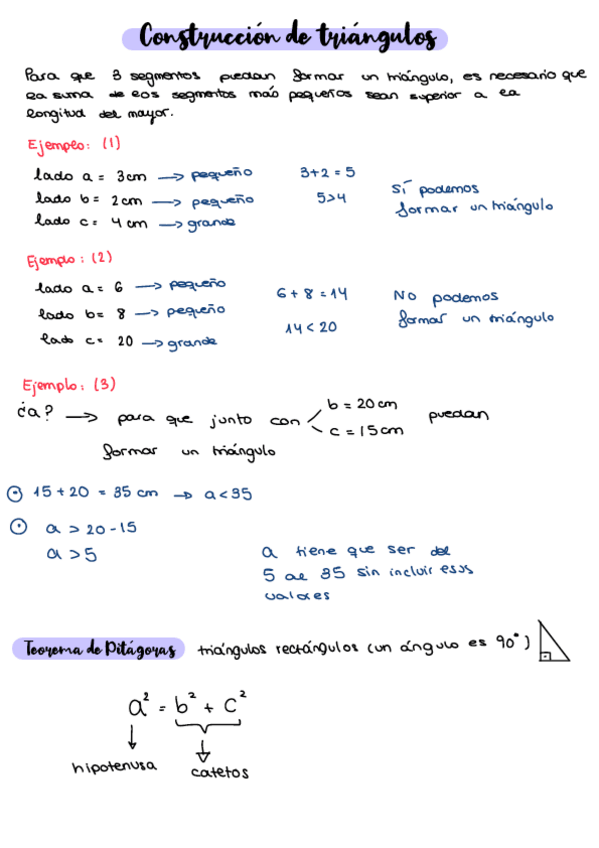 Construcción de triángulos
Para que 3 segmentos puedan formar un triángulo, es necesario que
la suma de los segmentos más pequeños sean superior a la
longitud del mayor.
Ejemplo: (1)
lado a = 3cm → pequeño 3+2 = 5
lado b = 2cm → pequeño 5>4 Sí podemos
lado c = 4 cm → grande formar un triángulo
Ejemplo: (2)
lado a = 6 → pequeño 6 + 8 = 14 No podemos
lado b = 8 → pequeño 14 < 20 formar un triángulo
lado c = 20 → grande
Ejemplo: (3)
¿a? → para que junto con b = 20cm puedan
c = 15cm
formar un triángulo
15 + 20 = 35 cm → a < 35
a > 20 - 15
a > 5
a tiene que ser del
5 al 35 sin incluir esos
valores
Teorema de Pitágoras triángulos rectángulos (un ángulo es 90°)
a² = b² + c²
hipotenusa catetos